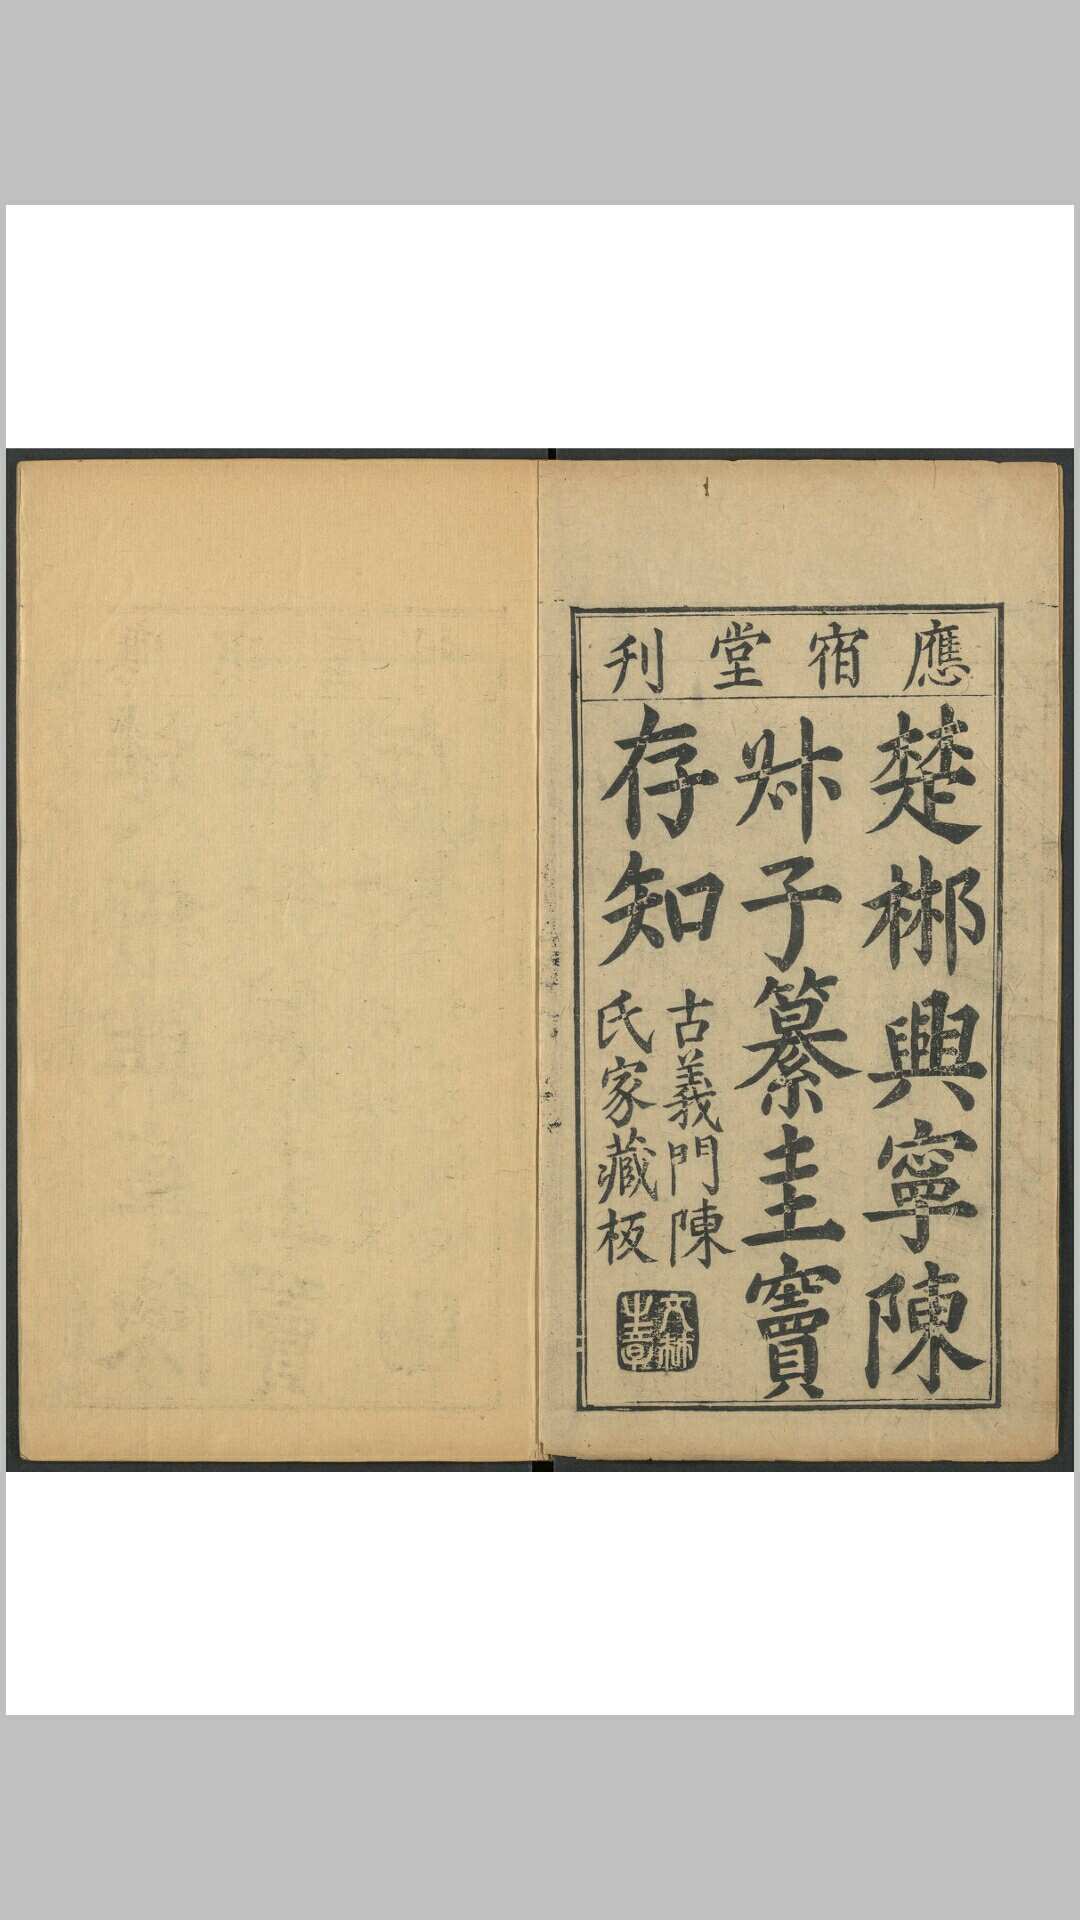 應宿堂刊
楚郴興寧陳
子纂圭竇
存知
古義門陳
氏家藏板
文林